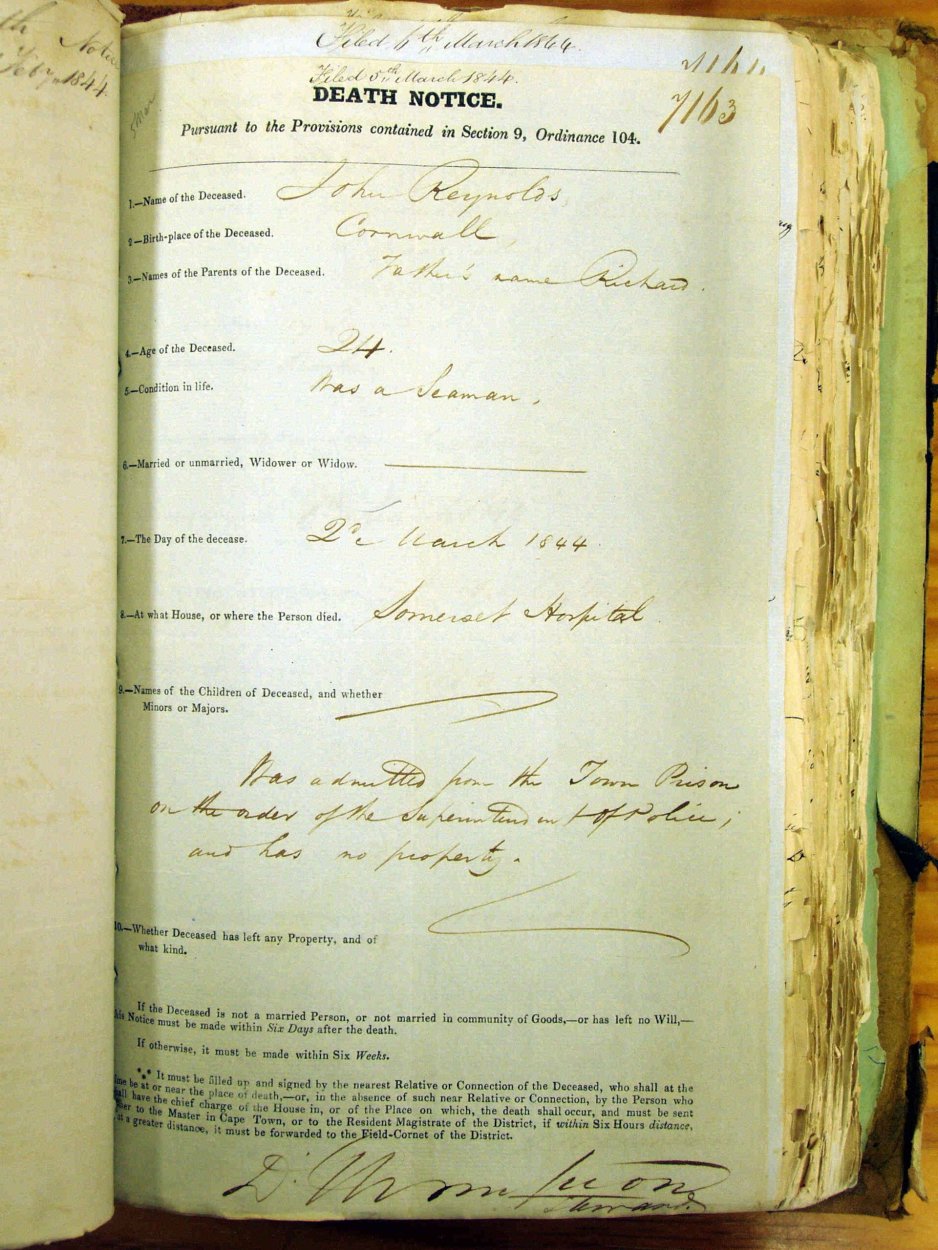 Notice
Feby 1844.
Filed 6th March 1844.
Filed 5th March 1844.
7163
DEATH NOTICE.
Pursuant to the Provisions contained in Section 9, Ordinance 104.
1.—Name of the Deceased. John Reynolds,
2—Birth-place of the Deceased. Cornwall,
3.—Names of the Parents of the Deceased. Father's name Richard.
4.—Age of the Deceased. 24.
5.—Condition in life. Was a Seaman,
6.—Married or unmarried, Widower or Widow.
7.—The Day of the decease. 2d March 1844
8.—At what House, or where the Person died. Somerset Hospital
9.—Names of the Children of Deceased, and whether
Minors or Majors.
Was admitted from the Town Prison
on the order of the Superintendent of Police;
and has no property.
10.—Whether Deceased has left any Property, and of
what kind.
If the Deceased is not a married Person, or not married in community of Goods,—or has left no Will,—
this Notice must be made within Six Days after the death.
If otherwise, it must be made within Six Weeks.
It must be filled up and signed by the nearest Relative or Connection of the Deceased, who shall at the
time be at or near the place of death,—or, in the absence of such near Relative or Connection, by the Person who
shall have the chief charge of the House in, or of the Place on which, the death shall occur, and must be sent
either to the Master in Cape Town, or to the Resident Magistrate of the District, if within Six Hours distance,
at a greater distance, it must be forwarded to the Field-Cornet of the District.